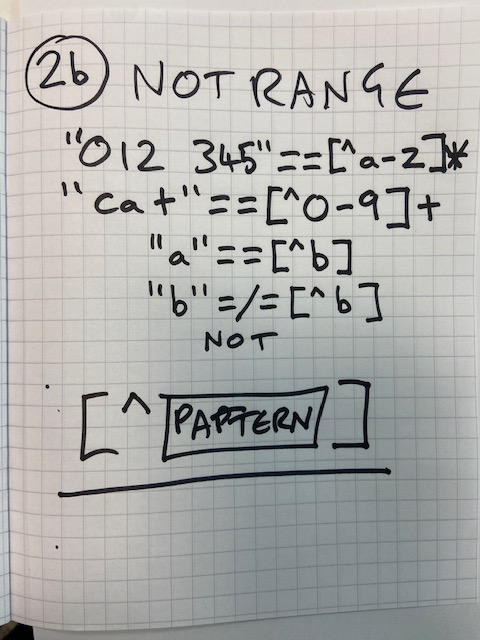 2b NOT RANGE
"012 345"==[^a-z]*
"cat"==[^0-9]+
"a"==[^b]
"b"=/=[^b]
NOT
[^PAPTERN]